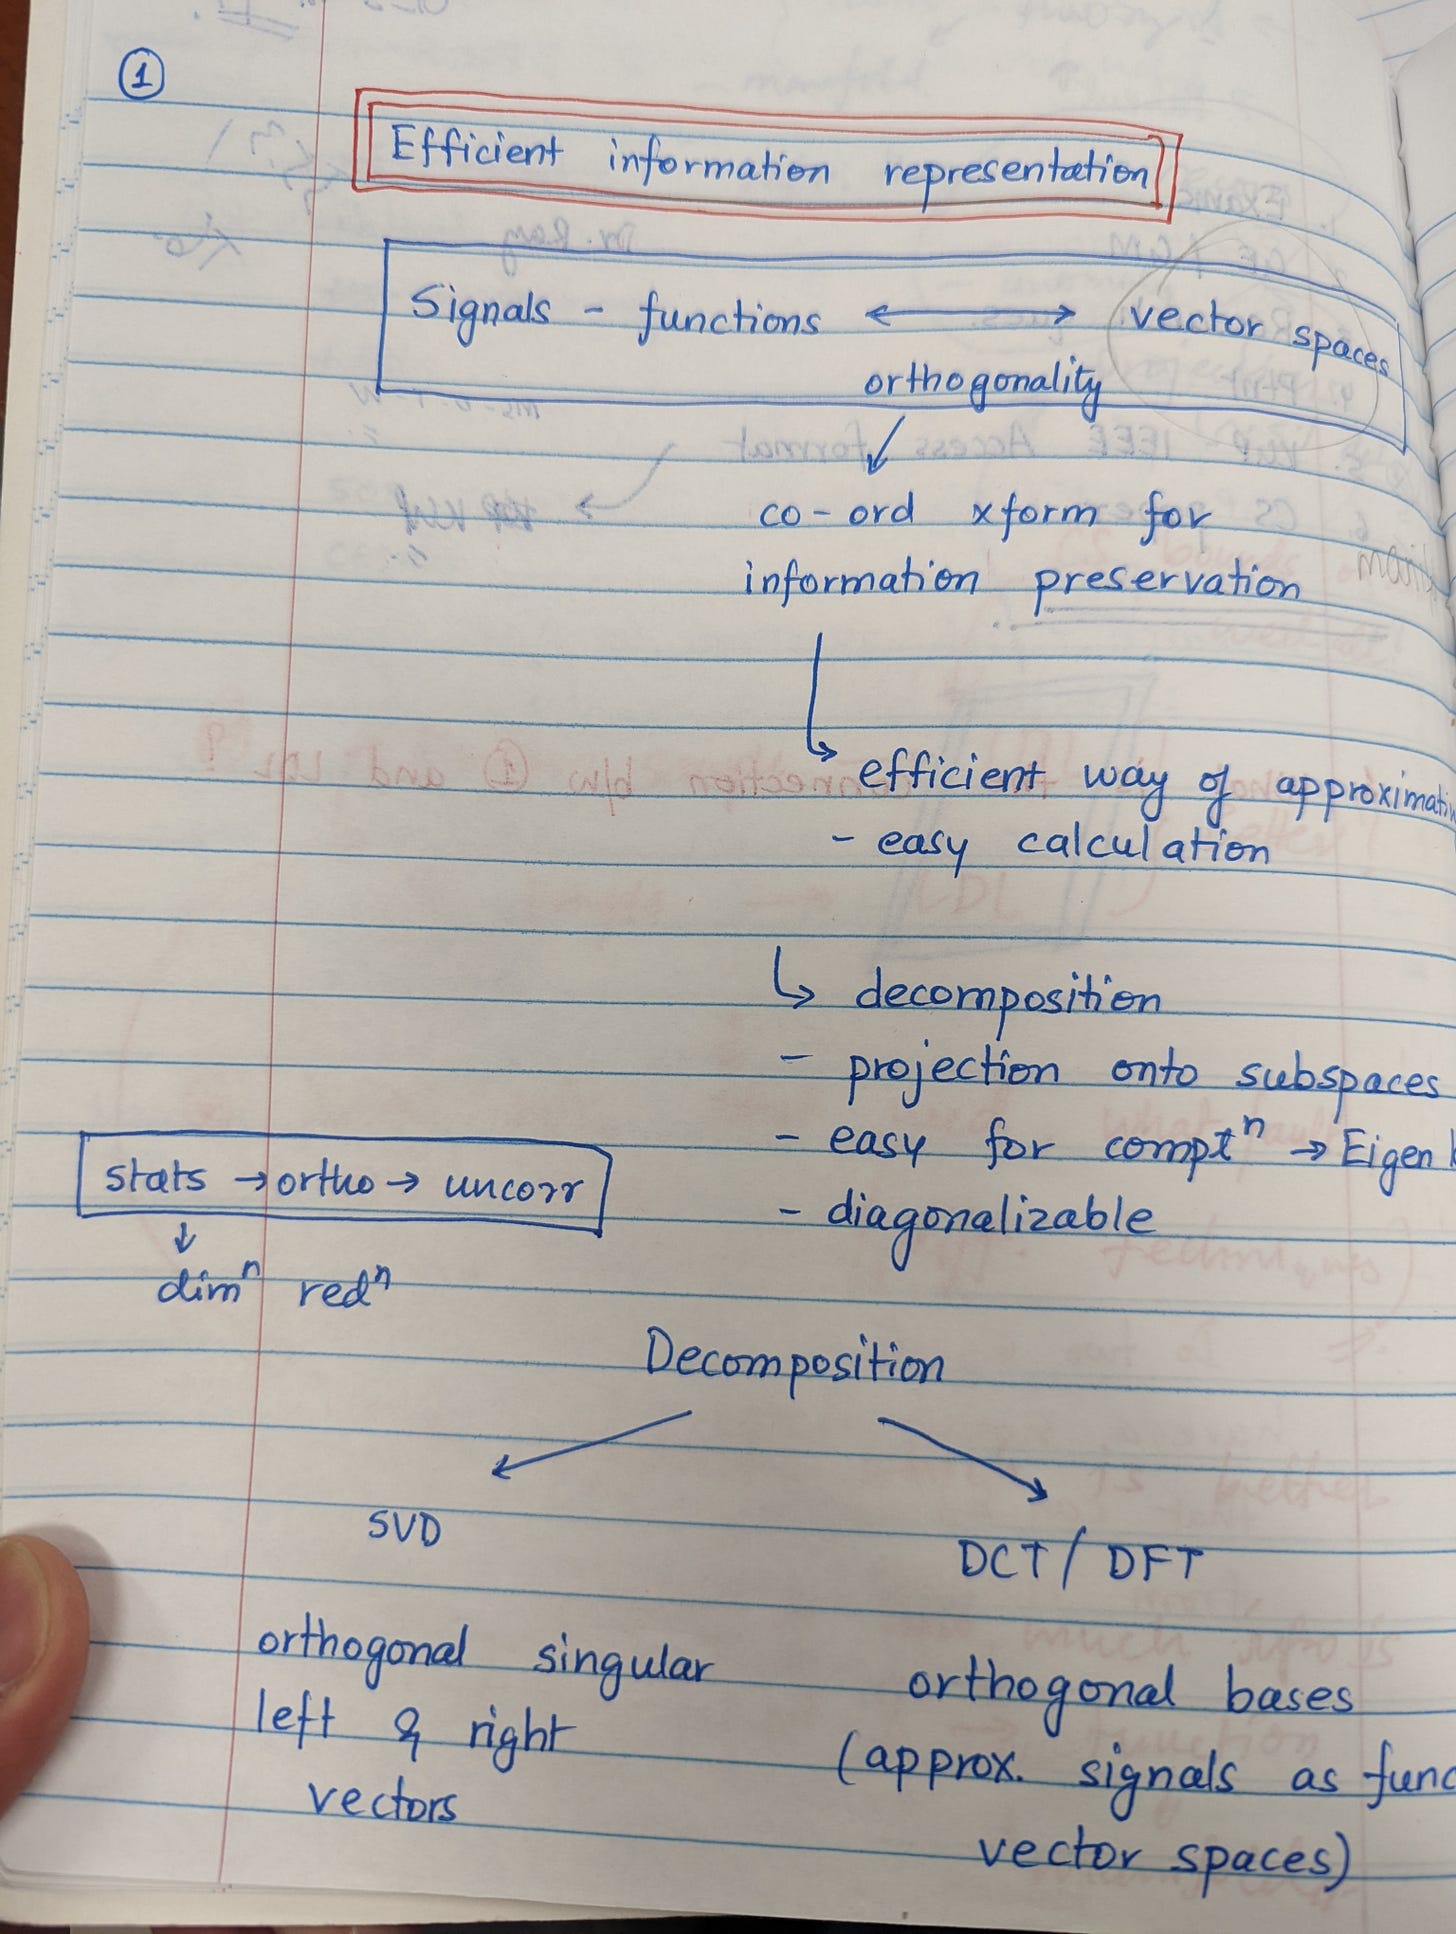 ①
Efficient information representation
Signals - functions ⟷ vector spaces
orthogonality
co-ord xform for
information preservation
efficient way of
- easy calculation
↳ decomposition
- projection onto subspaces
- easy for comptⁿ → Eigen
- diagonalizable
stats → ortho → uncorr
↓
dimⁿ redⁿ
Decomposition
SVD
DCT / DFT
orthogonal singular
left & right
vectors
orthogonal bases
(approx. signals as func
vector spaces)